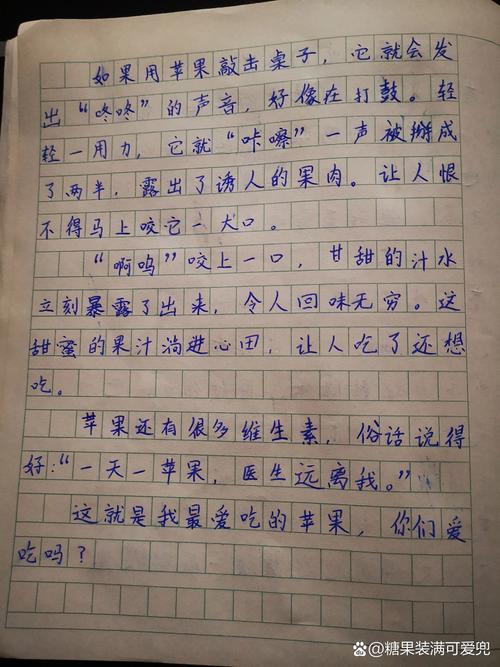 如果用苹果敲击桌子，它就会发
出“咚咚”的声音，好像在打鼓。轻
轻一用力，它就“咔嚓”一声被掰成
了两半，露出了诱人的果肉。让人恨
不得马上咬它一大口。
“啊呜”咬上一口，甘甜的汁水
立刻暴露了出来，令人回味无穷。这
甜蜜的果汁淌进心田，让人吃了还想
吃。
苹果还有很多维生素，俗话说得
好：“一天一苹果，医生远离我。”
这就是我最爱吃的苹果，你们爱
吃吗？
@糖果装满可爱兜